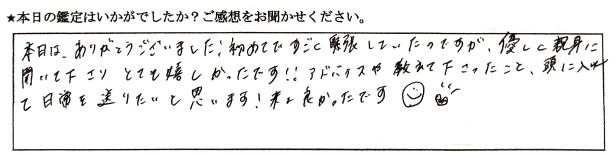 ★本日の鑑定はいかがでしたか？ご感想をお聞かせください。
本日は、ありがとうございました！初めてですごく緊張していたのですが、優しく親身に
聞いて下さり とても嬉しかったです！！アドバイスや教えて下さったこと、頭に入れ
て日常を送りたいと思います！来て良かったです